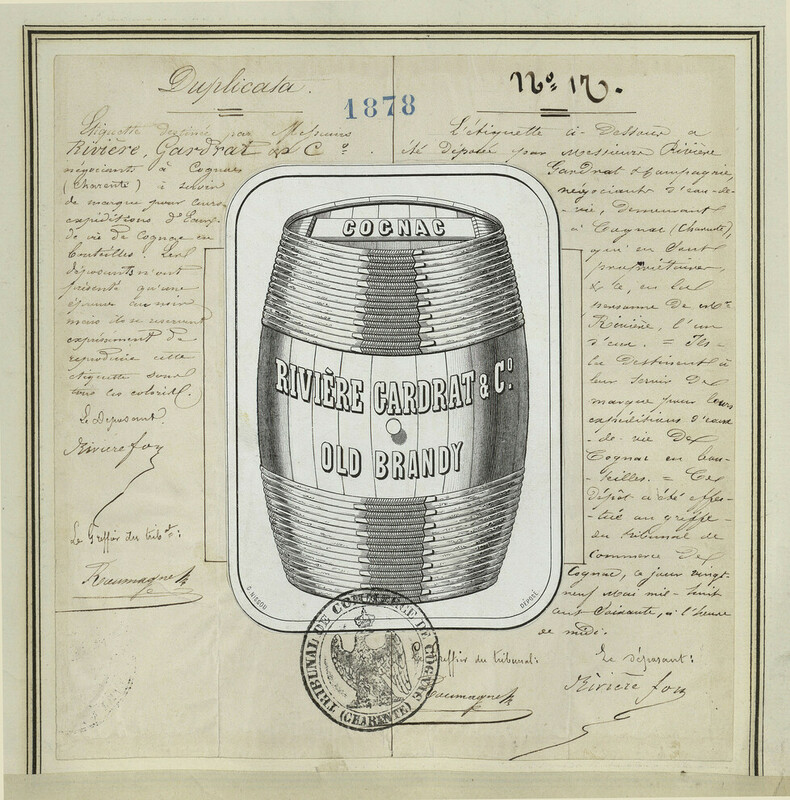 Duplicata.
1878
Nº 17.
Etiquette destinée par Messieurs
Rivière, Gardrat & Cº.
négociants à Cognac
(Charente) à servir
de marque pour leurs
expéditions d'Eaux-
de vie de Cognac en
bouteilles. Les
déposants n'ont
présenté qu'une
épreuve au noir
mais ils se réservent
expressément de
reproduire cette
étiquette sous
tous les coloris.
Le Déposant.
Rivière fox
Le Greffier du tribal:
L'étiquette ci-Dessous a
été Déposée par Messieurs Rivière
Gardrat & Compagnie,
négociants d'eau-de-
-vie, Demeurant
à Cognac (Charente),
qui en sont
propriétaires,
& ce, en la
personne de Mr.
Rivière, l'un
d'eux. = Ils
la Destinent à
leur servir de
marque pour leurs
expéditions d'eaux
-de-vie De
Cognac en bou-
-teilles. = Ce
Dépôt a été effec-
-tué au greffe
du tribunal de
Commerce De
Cognac, ce jour vingt-
neuf Mai mil-huit
cent Soixante, à l'heure
de midi.
COGNAC
RIVIÈRE GARDRAT & Cº.
OLD BRANDY
DÉPOSÉ
TRIBUNAL DE COMMERCE DE COGNAC
(CHARENTE)
greffier du tribunal:
Le déposant:
Rivière fox